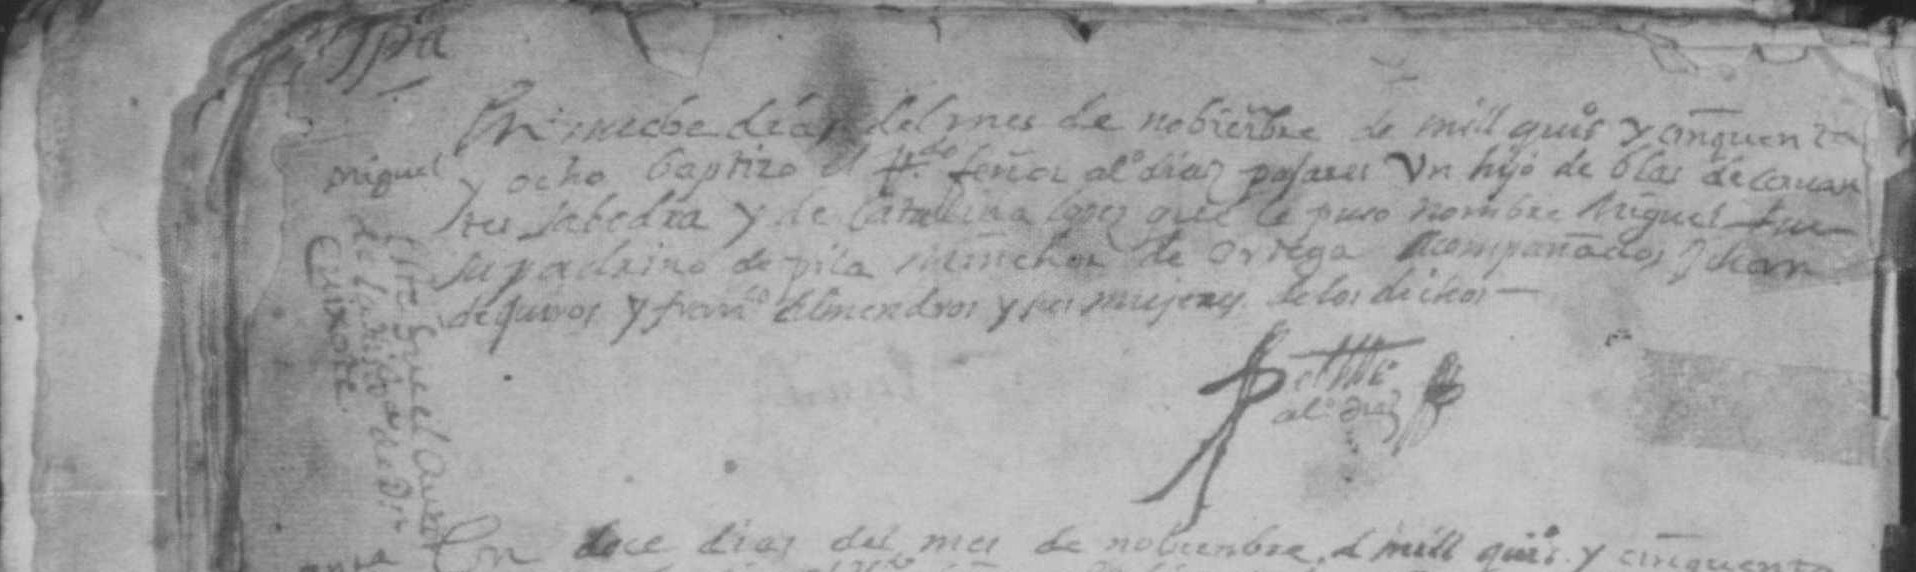 En nuebe dias del mes de nobienbre de mill quis y cinquenta
Miguel
y ocho baptizo el Rdo señor alo diaz pajares Un hijo de blas de ceruan
tes sabedra y de Catalina lopez que le puso nombre Miguel fue
su padrino de pila minchor de ortega acompañados Juan
de quiros y franco almendros y sus mujeres de los dichos
alo diaz
Este fue el autor
de la historia de Don
Quixote.
En doce dias del mes de nobienbre de mill quis y cinquenta